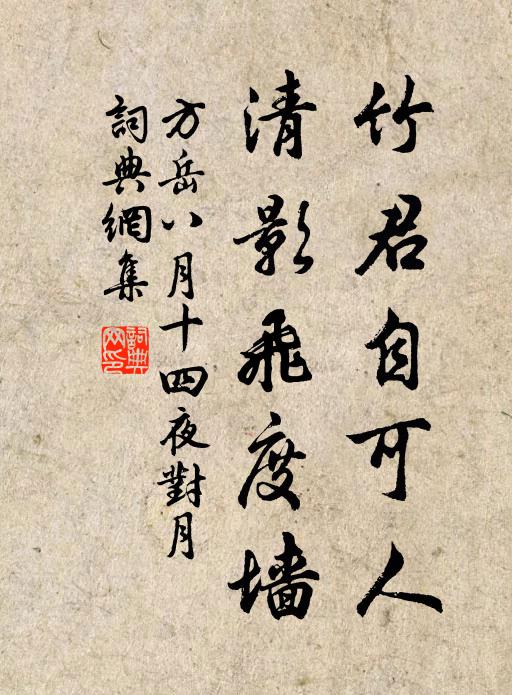 竹君自可人
清影飛度墙
方岳八月十四夜對月
詞典網集
詞典网印